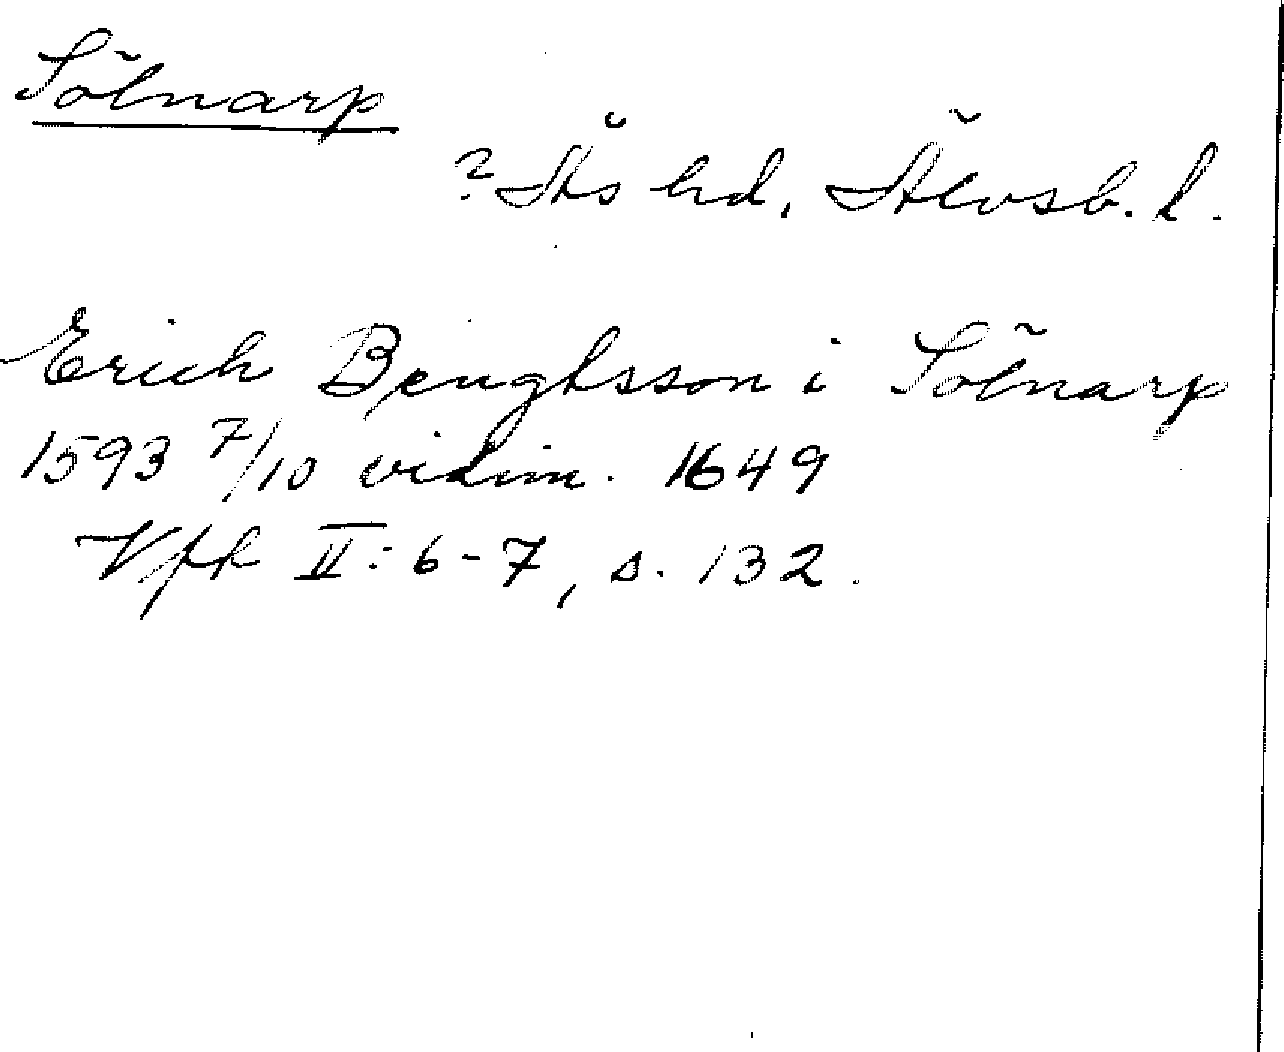 Sölnarp
? Ås hd, Älvsb. l.
Erich Benghtsson i Sölnarp
1593 7/10 vidim. 1649
Vfk II: 6-7, s. 132.